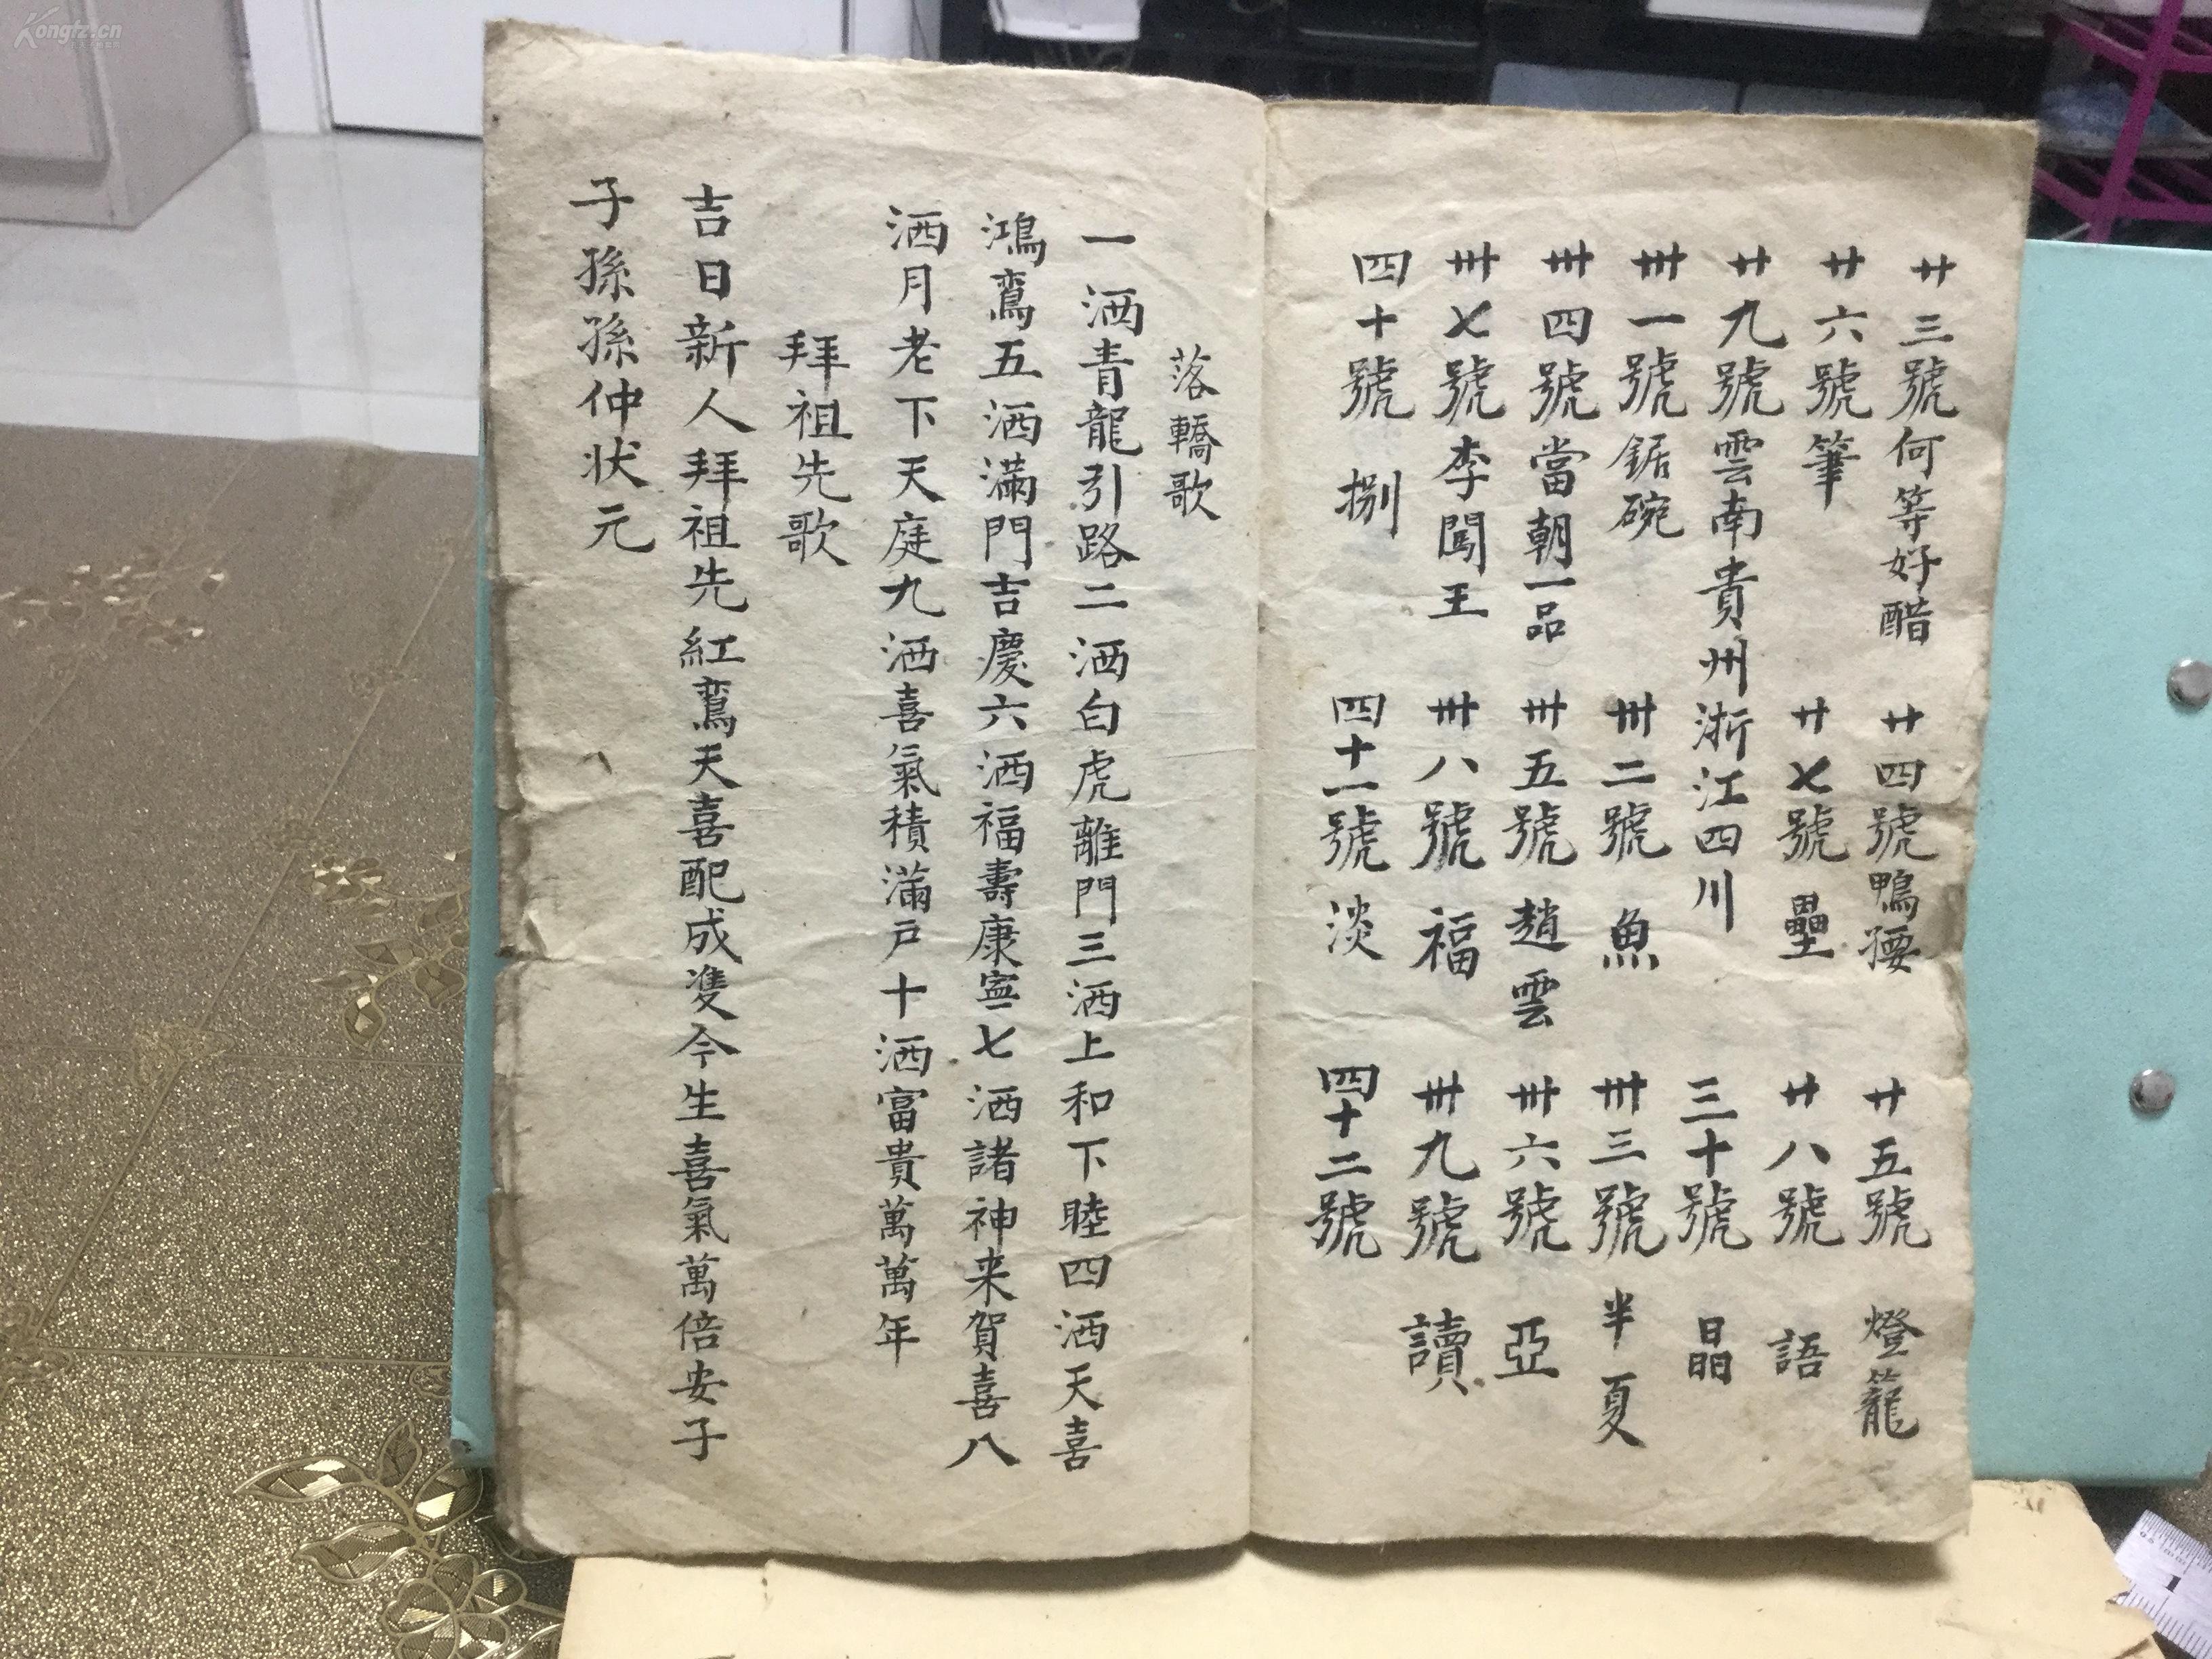 廿三號何等好醋　廿四號鴨𢱉　廿五號　燈籠
廿六號筆　廿七號　壘　廿八號　語
廿九號雲南貴州浙江四川　三十號　晶
卅一號鋸碗　卅二號　魚　卅三號　半夏
卅四號當朝一品　卅五號　趙雲　卅六號　亞
卅七號李闖王　卅八號　福　卅九號　讀
四十號　捌　四十一號　淡　四十二號
落轎歌
一洒青龍引路二洒白虎離門三洒上和下睦四洒天喜
鴻鸞五洒滿門吉慶六洒福壽康寧七洒諸神来賀喜八
洒月老下天庭九洒喜氣積滿戸十洒富貴萬萬年
拜祖先歌
吉日新人拜祖先紅鸞天喜配成雙今生喜氣萬倍安子
子孫孫仲状元
Kongfz.cn
1